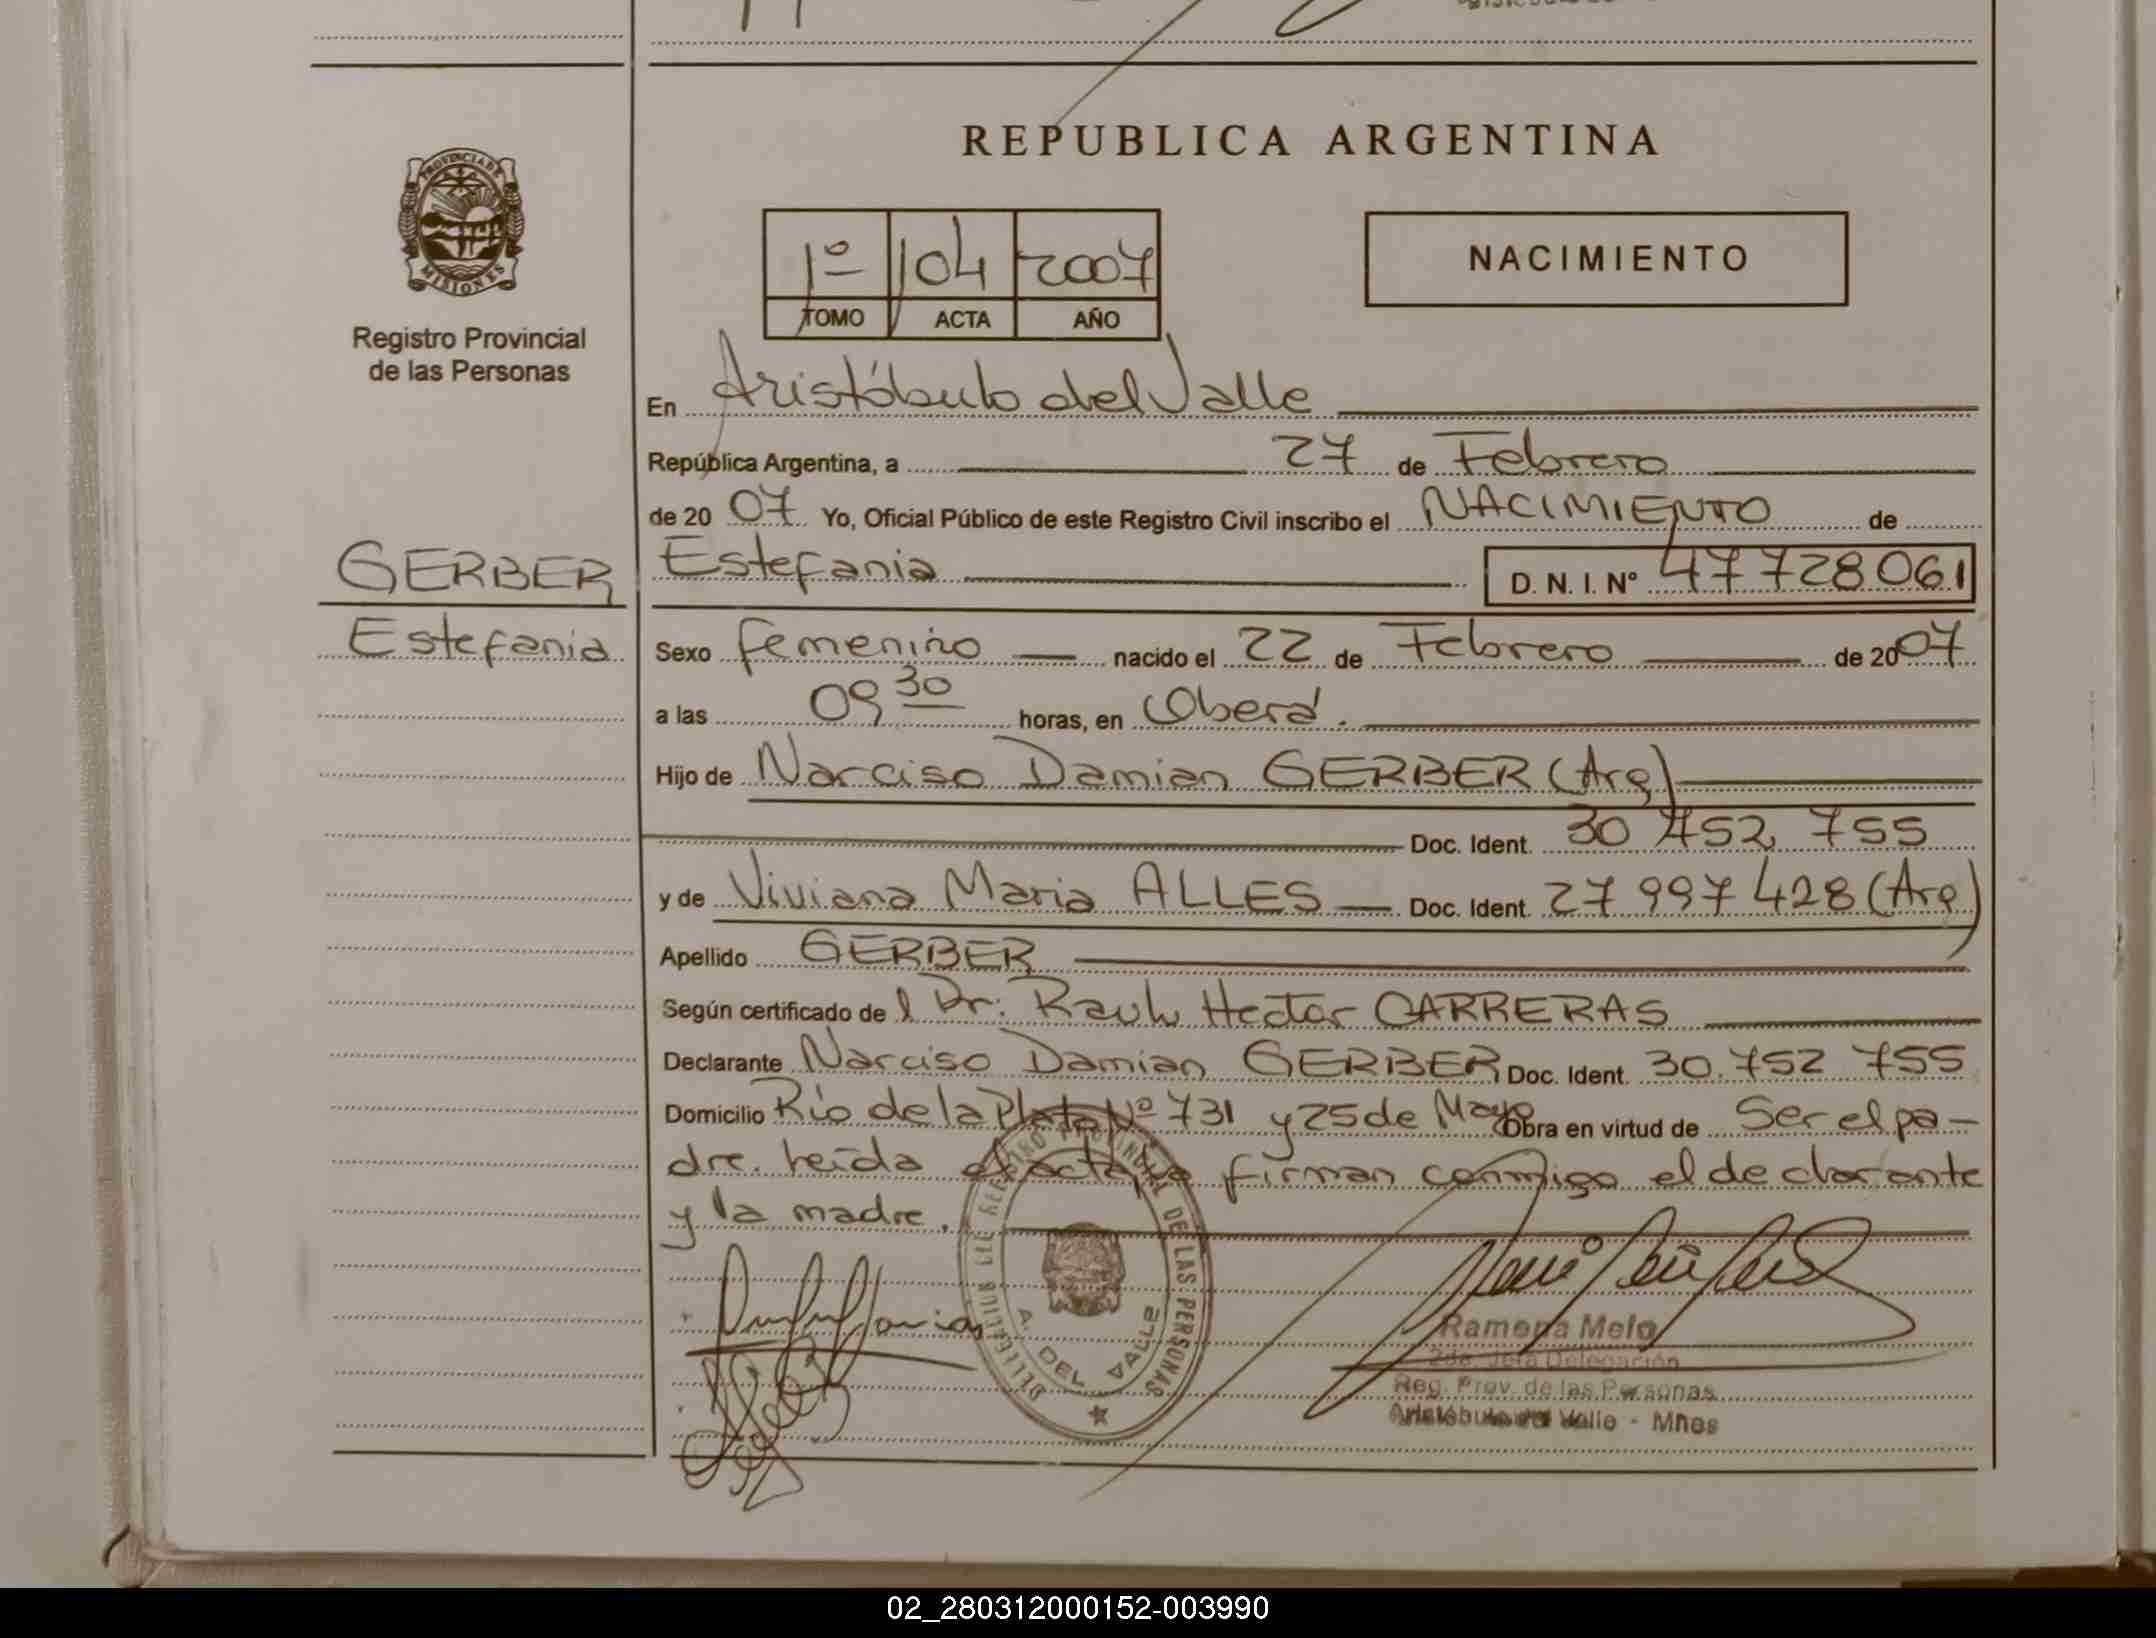 REPUBLICA ARGENTINA
PROVINCIA DE
MISIONES
Registro Provincial
de las Personas
1º 104 2007
TOMO ACTA AÑO
NACIMIENTO
En Aristóbulo del Valle
República Argentina, a 27 de Febrero
de 20 07 Yo, Oficial Público de este Registro Civil inscribo el NACIMIENTO de
GERBER
Estefania
Estefania D. N. I. Nº 47 728 061
Sexo femenino nacido el 22 de Febrero de 2007
a las 09 30 horas, en Oberá.
Hijo de Narciso Damian GERBER (Arg)
Doc. Ident. 30 752 755
y de Viviana Maria ALLES Doc. Ident. 27 997 428 (Arg)
Apellido GERBER
Según certificado de l Dr. Raul Hector CARRERAS
Declarante Narciso Damian GERBER Doc. Ident. 30.752 755
Domicilio Río de la Plata Nº 731 y 25 de Mayo Obra en virtud de Ser el pa-
dre. leída el acta firman conmigo el declarante
y la madre.
DELEGACION DEL REGISTRO PROVINCIAL DE LAS PERSONAS
A. DEL VALLE
Ramona Melo
2da. Jefa Delegación
Reg. Prov. de las Personas
Aristóbulo del Valle - Mnes
02_280312000152-003990